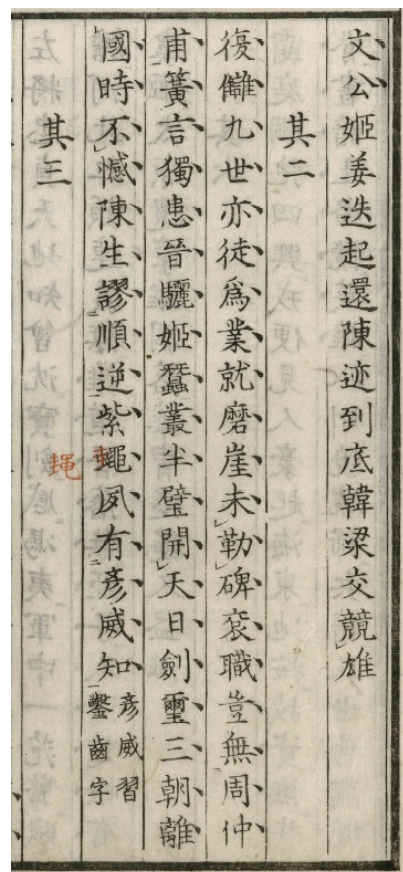 文公姬姜迭起還陳迹到底韓梁交競雄
其二
復讎九世亦徒爲業就磨崖未勒碑袞職豈無周仲
甫簧言獨患晉驪姬蠶叢半璧開天日劍璽三朝離
國時不憾陳生謬順逆紫蠅夙有彥威知彥威習鑿齒字
其三